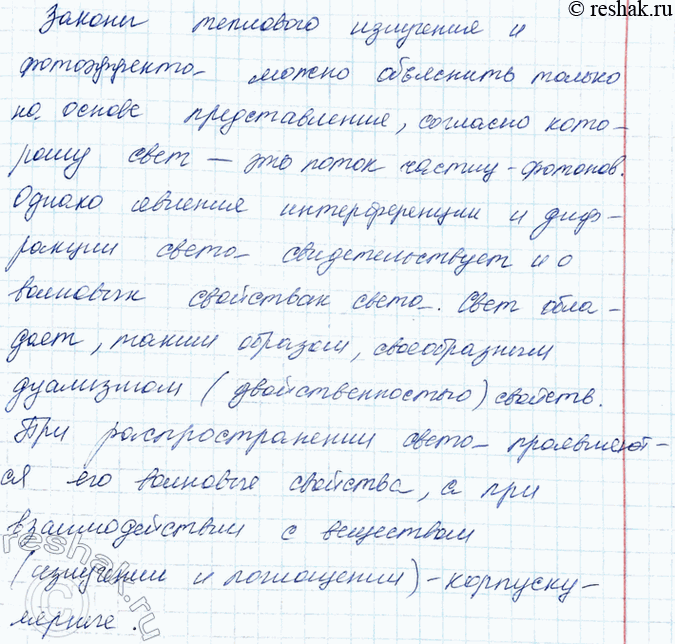 © reshak.ru
Законы теплового излучения и
фотоэффекта можно объяснить только
на основе представления, согласно кото-
рому свет – это поток частиц-фотонов.
Однако явления интерференции и диф-
ракции света свидетельствует и о
волновых свойствах света. Свет обла-
дает, таким образом, своеобразным
дуализмом (двойственностью) свойств.
При распространении света проявляют-
ся его волновые свойства, а при
взаимодействии с веществом
(излучении и поглощении)-корпуску-
лярные.
© reshak.ru